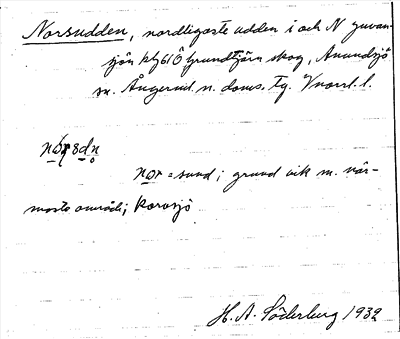 Norsudden, nordligaste udden i och N Juvan-
sjön kfg 610 Grundtjärn skog, Anundsjö
sn. Ångermd. n. doms. Tg. Vnorrl. l.
nɷrsdn
nɷr = sund; grund vik m. när-
maste område; Korssjö
H. A. Söderberg 1932